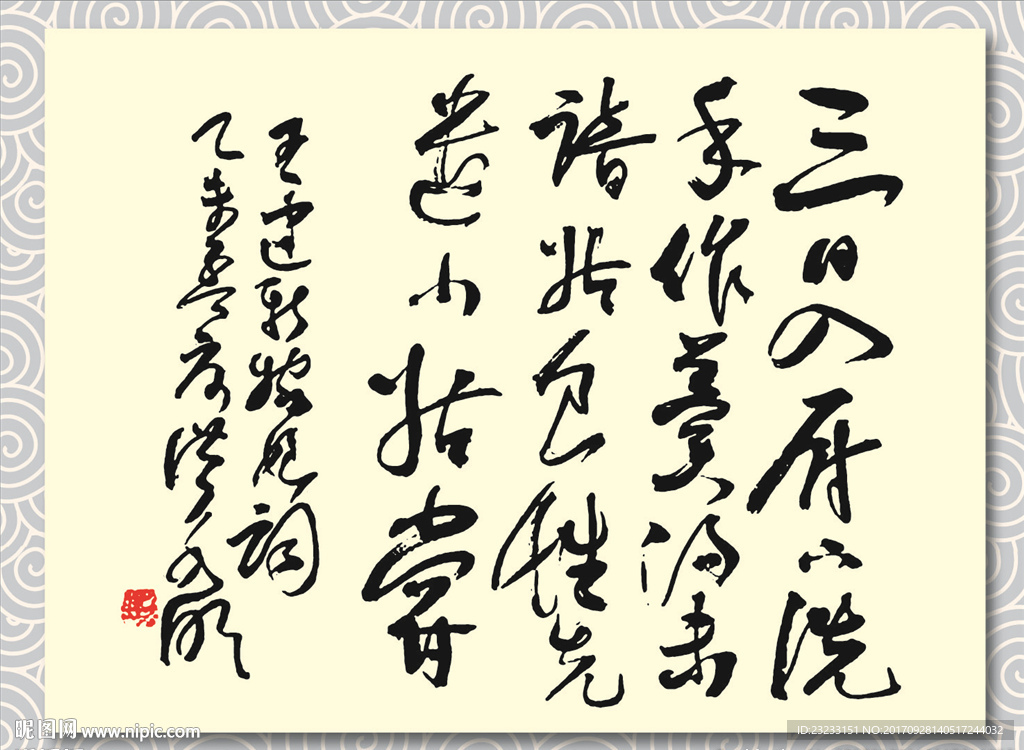 三日入厨下洗
手作羹汤未
谙姑食性先
遣小姑嘗
王建新嫁娘词
乙未
昵图网 www.nipic.com
ID:23233151 NO:20170928140517244032